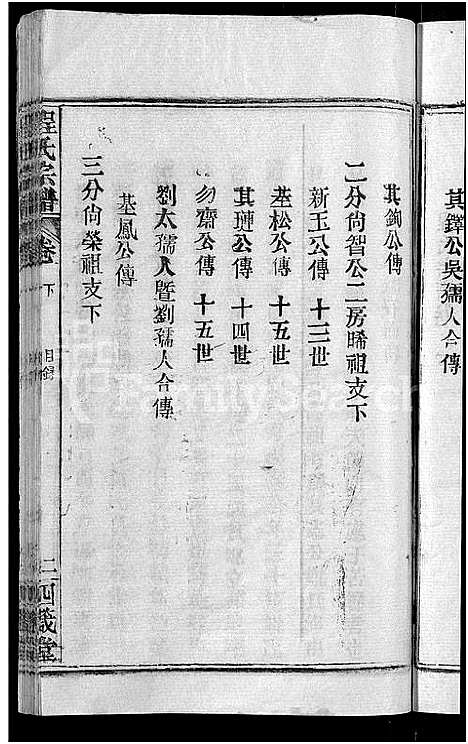 其鐸公吳孺人合傳
其鈞公傳
二分尙智公二房晞祖支下
新玉公傳 十三世
基松公傳 十五世
其璉公傳 十四世
勿齋公傳 十五世
劉太孺人暨劉孺人合傳
基鳳公傳
三分尙榮祖支下
程氏宗譜 卷下 目錄 二 四箴堂
FamilySearch